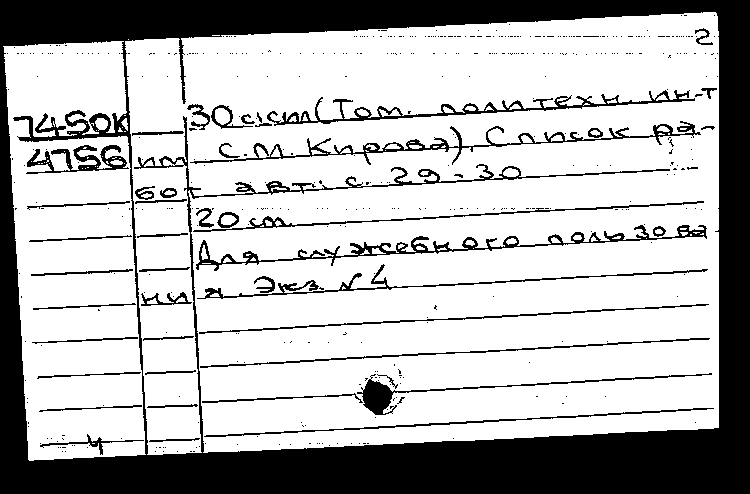 2
7450К 30 с.ил (Том. политехн. ин-т
4756 им С.М. Кирова). Список ра-
бот авт.: с. 29-30
20 см.
Для служебного пользова
ния. Экз. № 4
ч